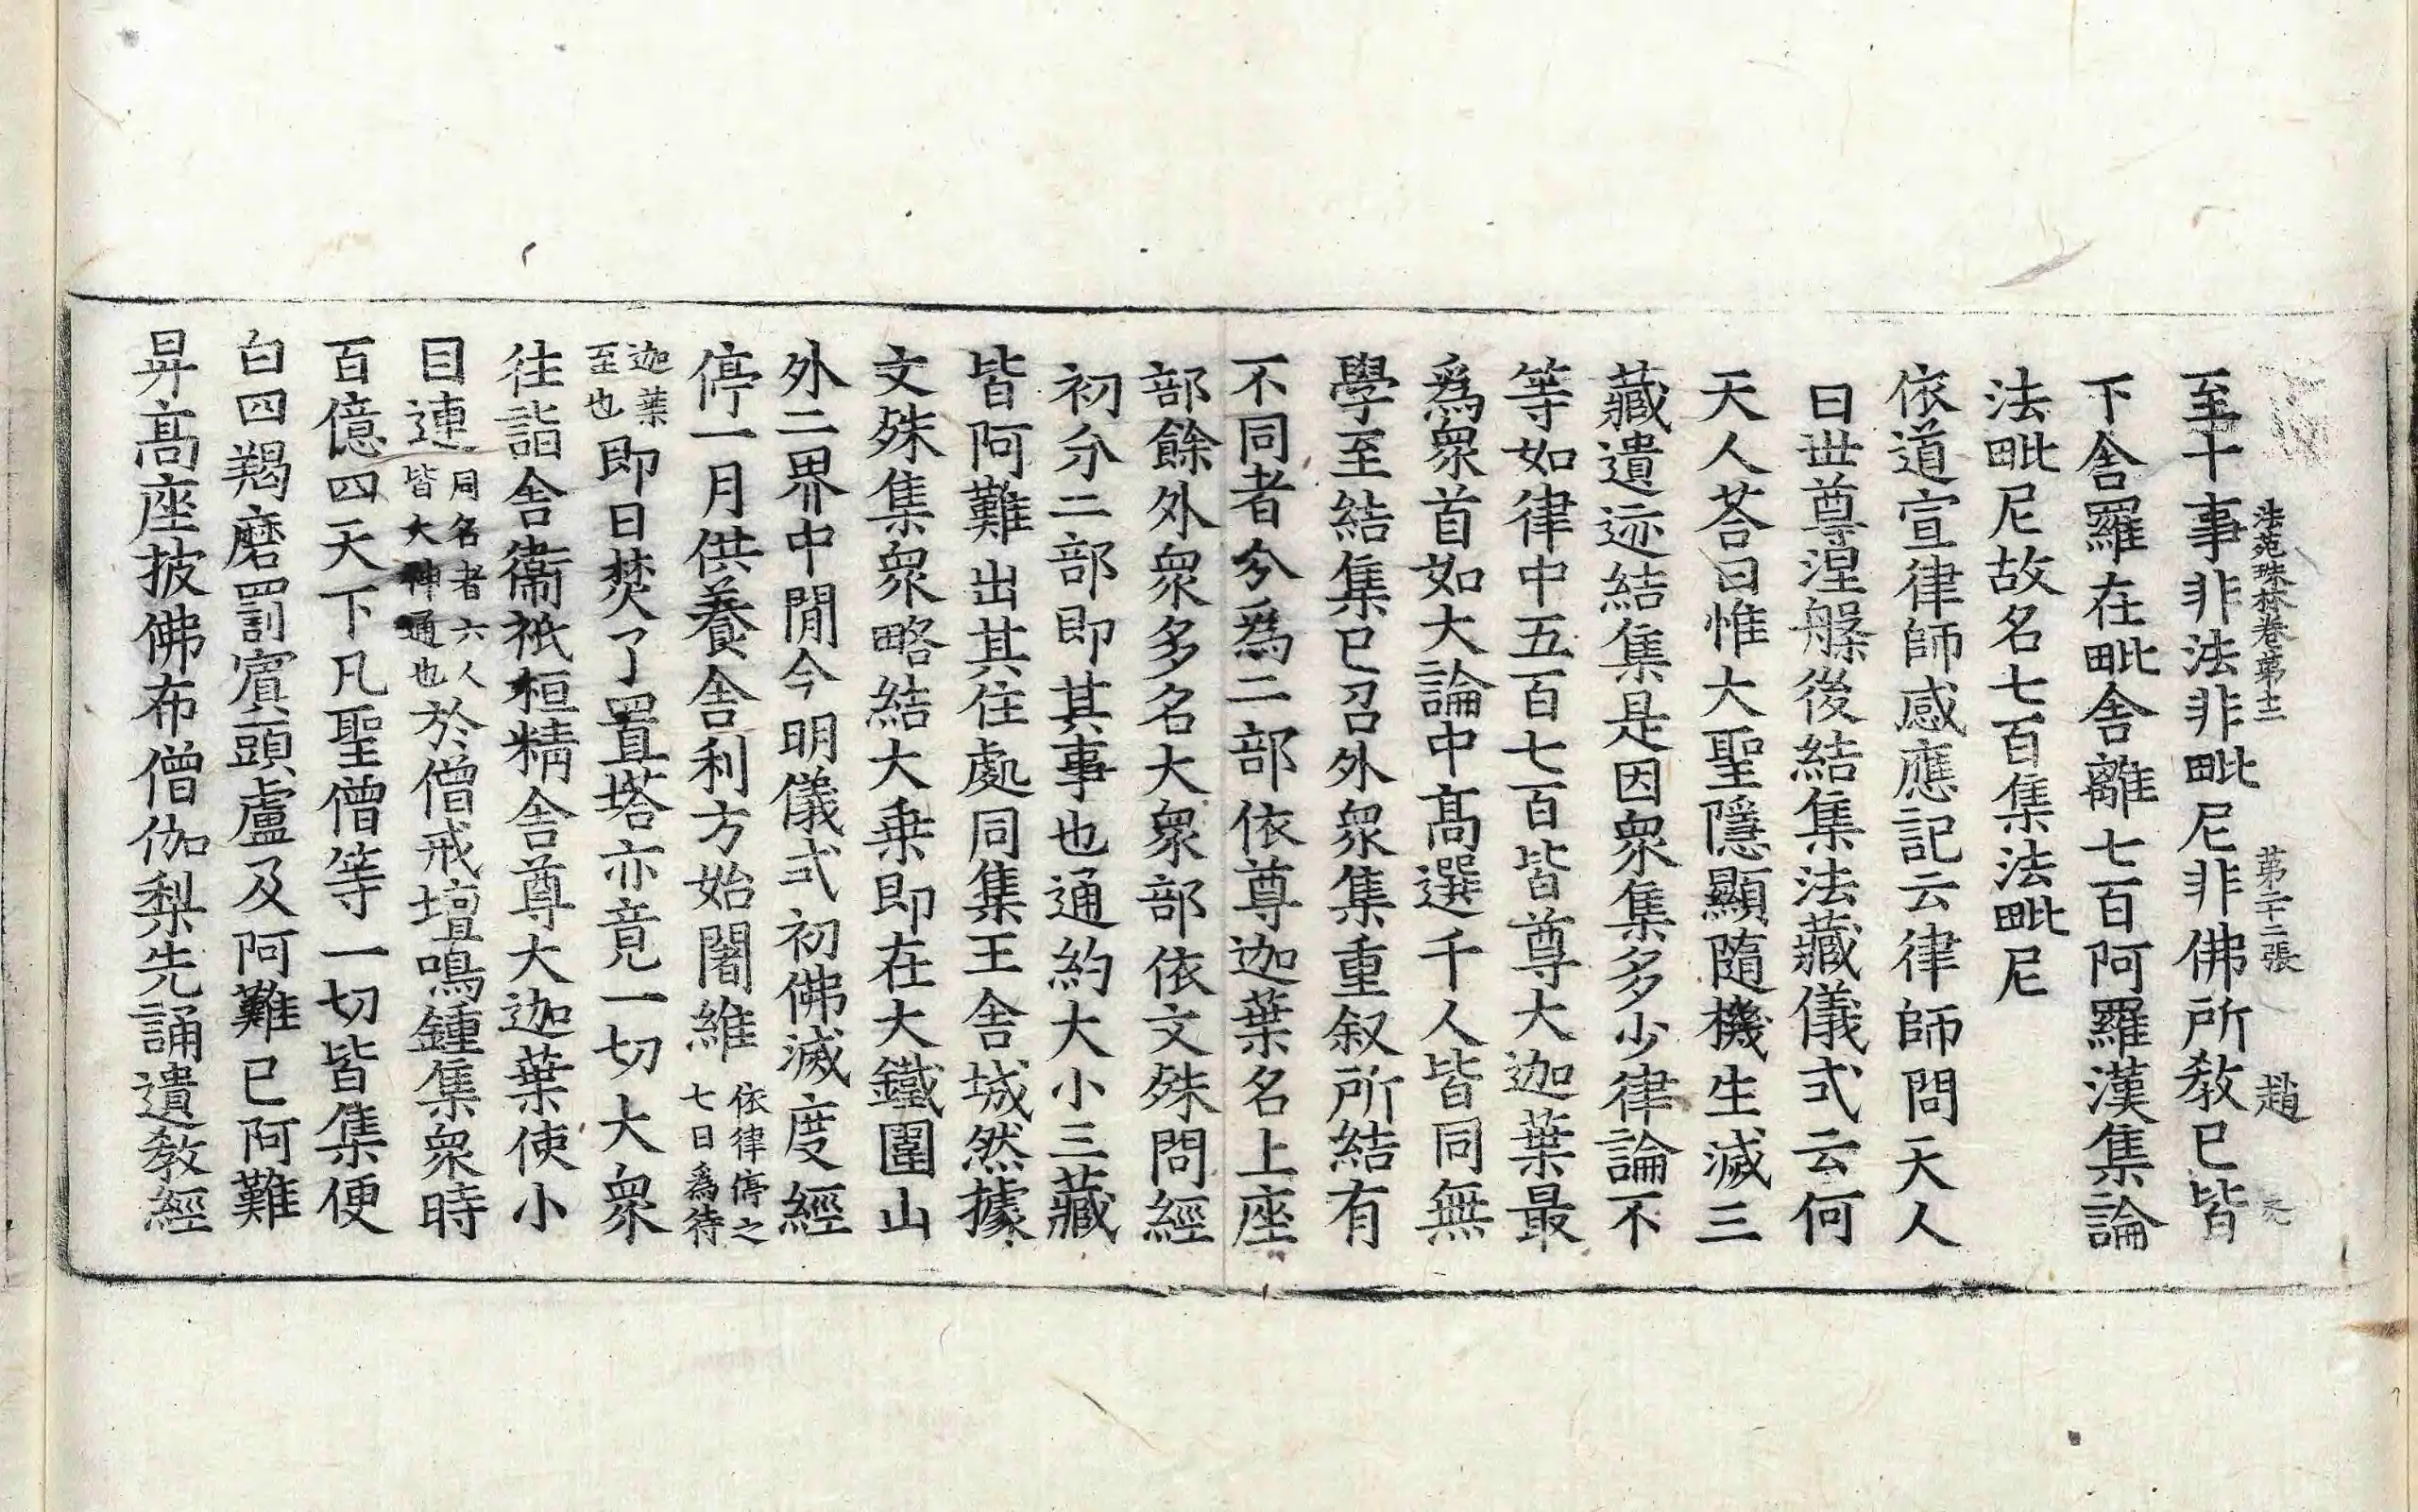 法苑珠林卷第十二 第二十二張 趙
至十事非法非毗尼非佛所教已皆
下舍羅在毗舍離七百阿羅漢集論
法毗尼故名七百集法毗尼
依道宣律師感應記云律師問天人
曰世尊涅槃後結集法藏儀式云何
天人荅曰惟大聖隱顯隨機生滅三
藏遺迹結集是因衆集多少律論不
等如律中五百七百皆尊大迦葉最
爲衆首如大論中髙選千人皆同無
學至結集已召外衆集重叙所結有
不同者分爲二部依尊迦葉名上座
部餘外衆多名大衆部依文殊問經
初分二部即其事也通約大小三藏
皆阿難出其住處同集王舍城然據
文殊集衆略結大乗即在大鐵圍山
外二界中閒今明儀式初佛滅度經
停一月供養舍利方始闍維依律停之七日爲待
迦葉至也即日焚了置塔亦竟一切大衆
往詣舍衞祇桓精舍尊大迦葉使小
目連同名者六人皆大神通也於僧戒壇鳴鍾集衆時
百億四天下凡聖僧等一切皆集便
白四羯磨罰賓頭盧及阿難已阿難
昇髙座披佛布僧伽梨先誦遺教經